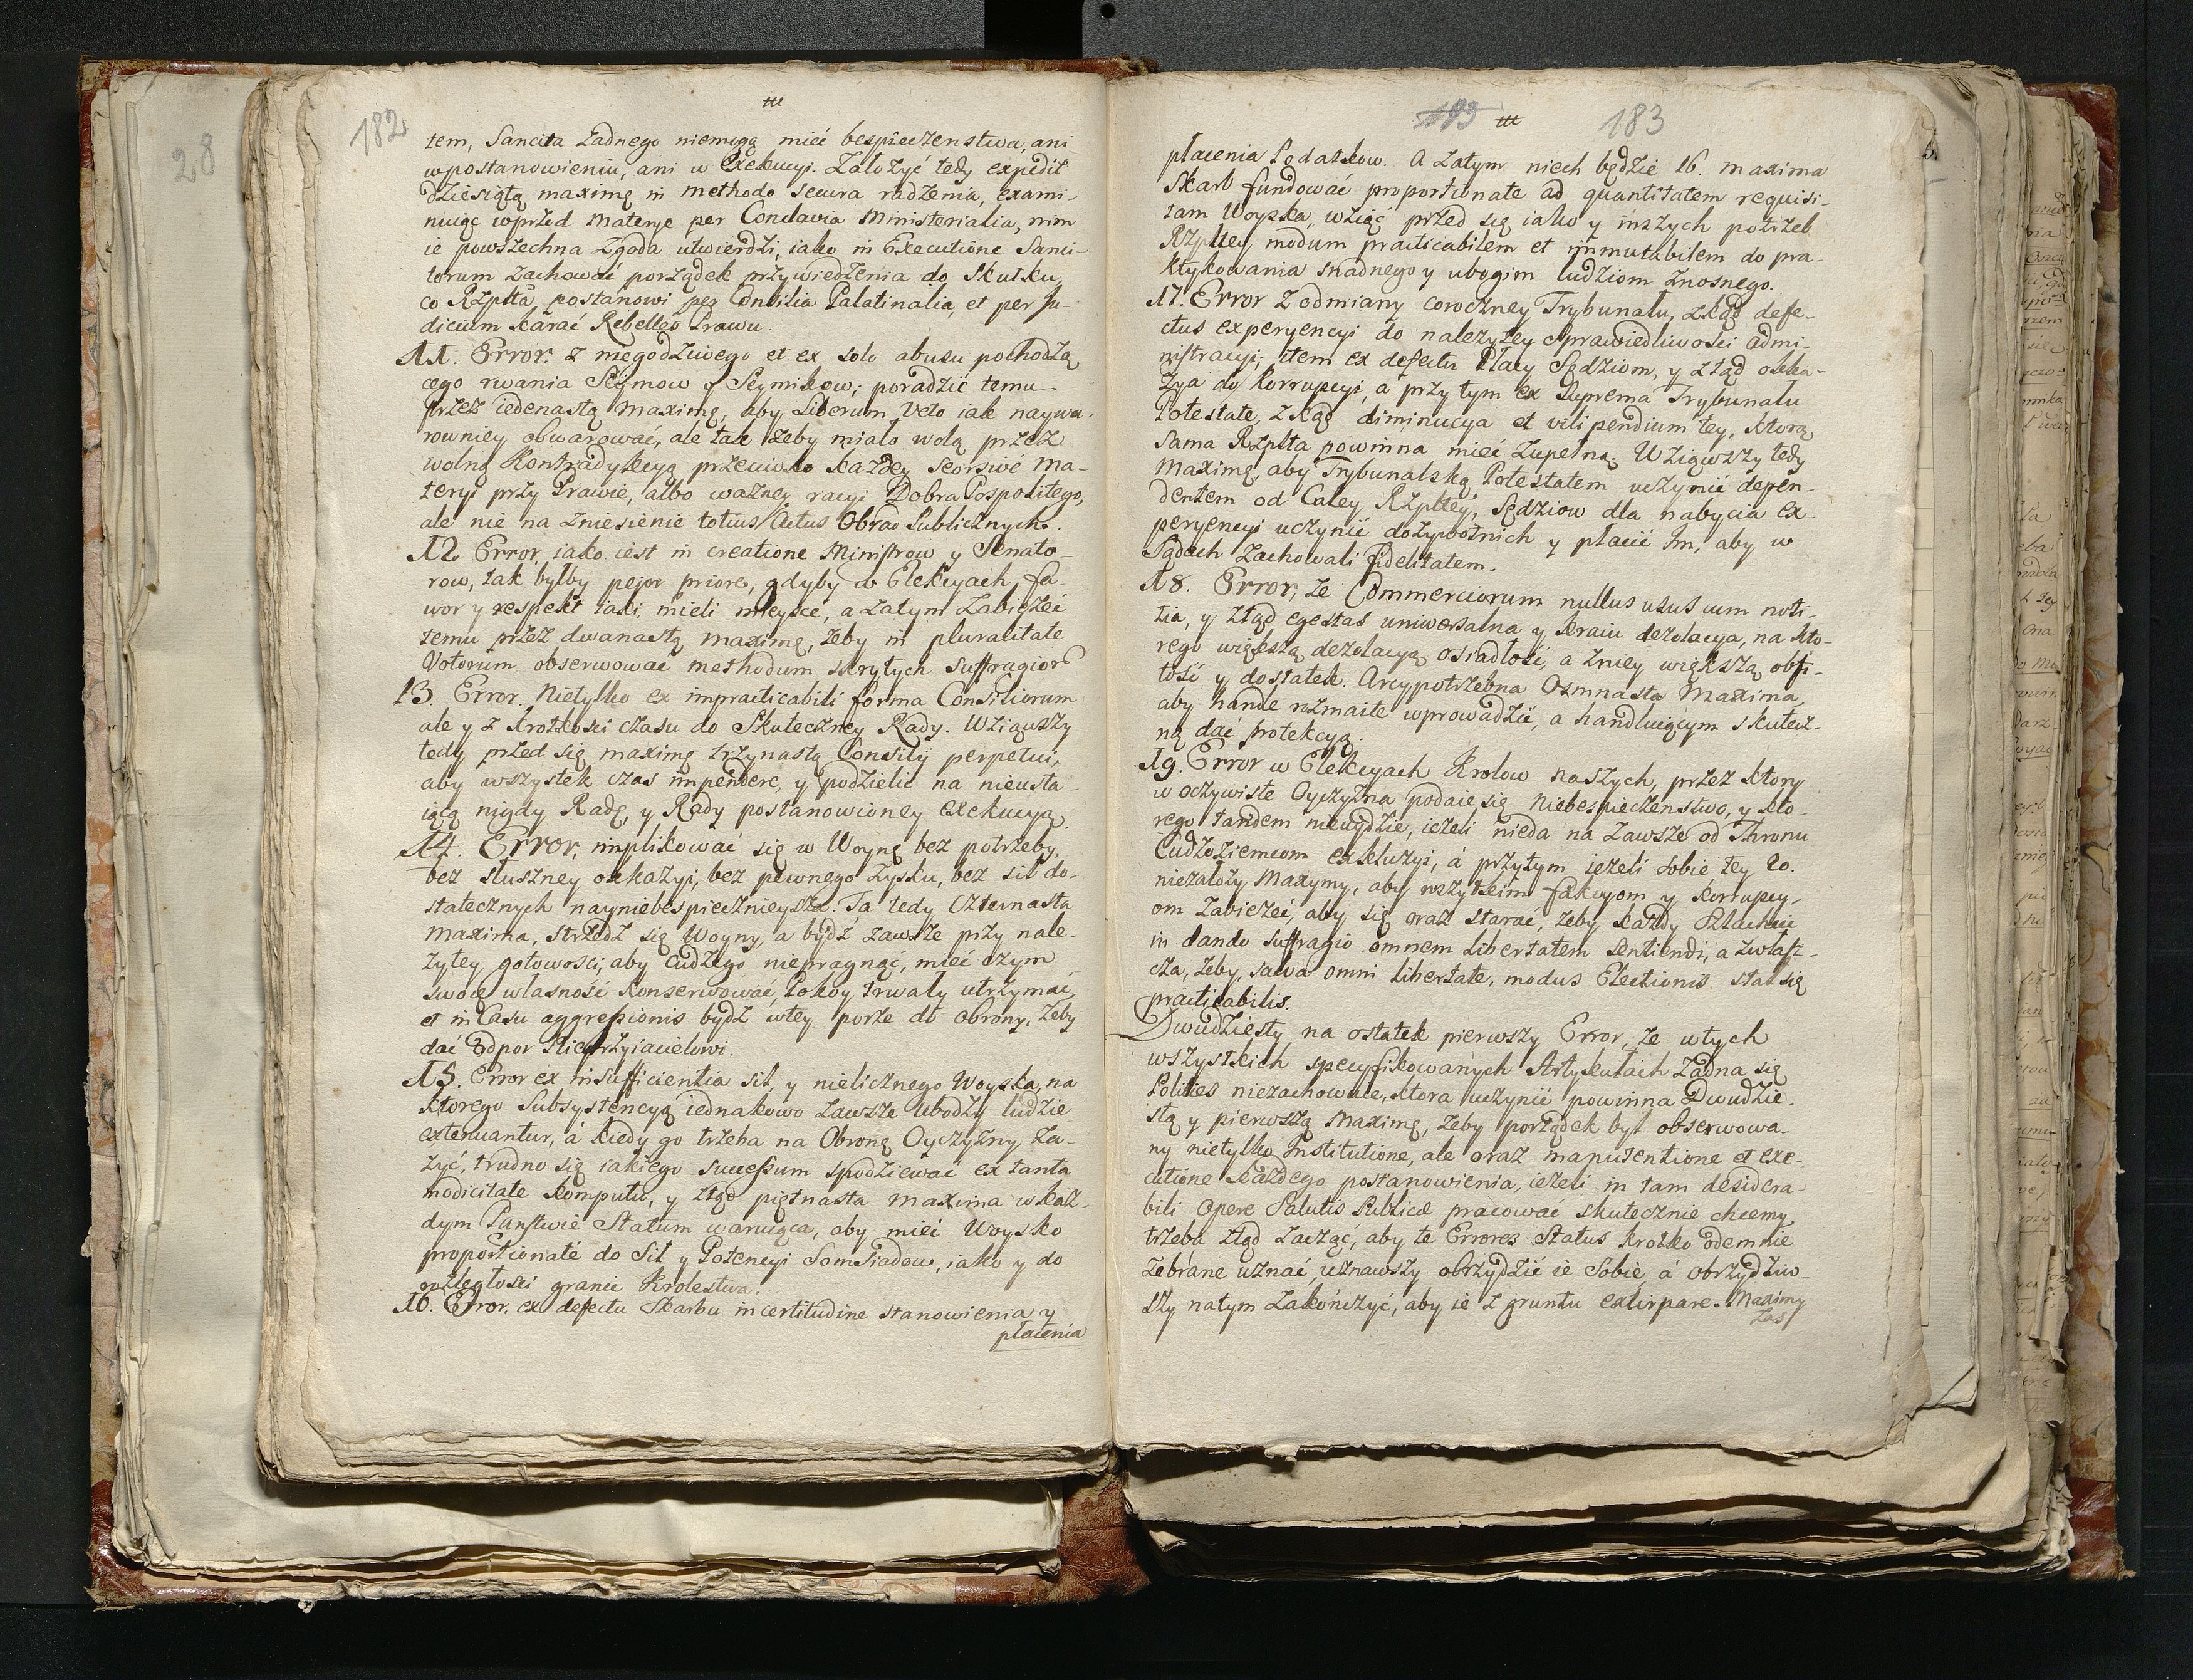 182
tem, Sancita żadnego niemogą mieć bespieczenstwa, ani
w postanowieniu, ani w Exekucyi. Założyć tedy expedit
dziesiątą maximę in methodo secura radzenia, exami-
nuiąc wprzod Materye per Conclavia Ministerialia, nim
ie powszechna Zgoda utwierdzi, iako in Executione Sanci-
torum zachować porządek przywiedzenia do Skutku,
co Rzplta postanowi per Consilia Palatinalia, et per Ju-
dicium karać Rebelles Prawu.
11. Error. z niegodziwego et ex solo abusu pochodzą
cego rwania Seymow y Seymikow; poradzić temu
przez iedenastą Maximę, aby Liberum Veto iak naywa-
rowniey obwarować, ale tak żeby miało wolą przez
wolną Kontradykcyą przeciwko każdey seorsivè ma-
teryi przy Prawie, albo ważney racyi Dobra Pospolitego,
ale nie na zniesienie totius Actus Obrad Publicznych.
12 Error, iako iest in creatione Ministrow y Senato-
row, tak byłby pejor priore, gdyby w Elekcyach fa-
wor y respekt iaki mieli mieysce, a zatym zabieżeć
temu przez dwanastą maximę, żeby in pluralitate
Votorum obserwować methodum skrytych suffragiorū
13. Error. Nietylko ex impracticabili forma Consiliorum
ale y z krotkosci czasu do Skuteczney Rady. Wziąwszy
tedy przed się maximę trzynastą Consilij perpetui,
aby wszystek czas impendere, y podzielic na nieusta-
iącą nigdy Radę, y Rady postanowioney exekucyą.
14. Error, implikować się w Woynę bez potrzeby,
bez słuszney okkazyi, bez pewnego zysku, bez sił do-
statecznych nayniebespiecznieysza. Ta tedy Czternasta
Maxima, strzedz się Woyny, a bydź zawsze przy nale-
żytey gotowosci, aby cudzego niepragnąć, mieć czym
swoię własność konserwować, pokoy trwały utrzymać,
et in Casu aggressionis bydź w tey porze do obrony, żeby
dać odpor Nieprzyiacielowi.
15. Error ex insufficientia sił, y nielicznego Woyska, na
ktorego Subsystencyą iednakowo zawsze ubodzy ludzie
extenuantur, á kiedy go trzeba na Obronę Oyczyzny za-
żyć, trudno się iakiego successum spodziewać ex tanta
modicitate komputu, y ztąd piętnasta maxima w każ-
dym Państwie Statum waruiąca, aby mieć Woysko
proportionatè do Sił y Potencyi Somsiadow, iako y do
rozległosci granic Krolestwa.
16. Error. ex defectu Skarbu incertitudine stanowienia y
płacenia
193 183
płacenia Podatkow. A zatym niech będzie 16. maxima
Skarb fundować proportionate ad quantitatem requisi-
tam Woyska, wziąć przed się iako y inszych potrzeb
Rzpltey, modum practicabilem et immutabilem do pra-
ktykowania snadnego y ubogim ludziom znosnego.
17. Error z odmiany coroczney Trybunału, zkąd defe-
ctus experyencyi do należytey sprawiedliwości admi-
nistracyi; item ex defectu Płacy Sędziom, y ztąd okka-
zya do korrupcyi, a przy tym ex suprema Trybunału
Potestate, zkąd diminucya et vilipendium tey, ktorą
sama Rzplta powinna mieć zupełną. Wziąwszy tedy
Maximę, aby Trybunalską Potestatem uczynić depen-
dentem od Całey Rzpltey, Sędziow dla nabycia ex-
peryencyi uczynić dożywotnich y płacić Im, aby w
Sądach zachowali fidelitatem.
18. Error, że Commerciorum nullus usus cum noti-
tia, y ztąd egestas uniwersalna y kraiu dezolacya, na kto-
rego większą dezolacyą osiadłość, a zniey większą obfi-
tość y dostatek. Arcypotrzebna Osmnasta Maxima,
aby handle rozmaite wprowadzić, a handluiącym skutecz-
ną dać protekcyą.
19. Error w Elekcyach Krolow naszych, przez ktory
w oczywiste Oyczyzna podaie się niebespieczenstwo, y kto-
rego tandem nieuydzie, ieżeli nieda na zawsze od Thronu
Cudzoziemcom exkluzyi, á przytym ieżeli sobie tey 20.
niezałoży Maxymy, aby wszystkim fakcyom y korrupcy-
om zabieżeć, aby się oraz starać, żeby każdy Szlachcic
in dando suffragio omnem libertatem sentiendi, a zwłasz-
cza, żeby, salva omni libertate, modus Electionis stał się
practicabilis.
Dwudziesty na ostatek pierwszy Error, że w tych
wszystkich specyfikowanych Artykułach żadna się
Polities niezachowuie, ktora uczynić powinna Dwudzie-
stą y pierwszą Maximę, żeby porządek był obserwowa-
ny nietylko Institutione, ale oraz manutentione et exe-
cutione każdego postanowienia, ieżeli in tam desidera-
bili Opere Salutis Publicæ pracować skutecznie chcemy
trzeba ztąd zacząć, aby te Errores Status krotko odemnie
zebrane uznać, uznawszy obrzydzić ie sobie, á obrzydziw-
szy natym zakończyć, aby ie z gruntu extirpare. Maximy
zas
28